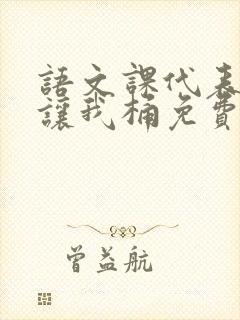 語文課代表
讓我桶免費
曾益航